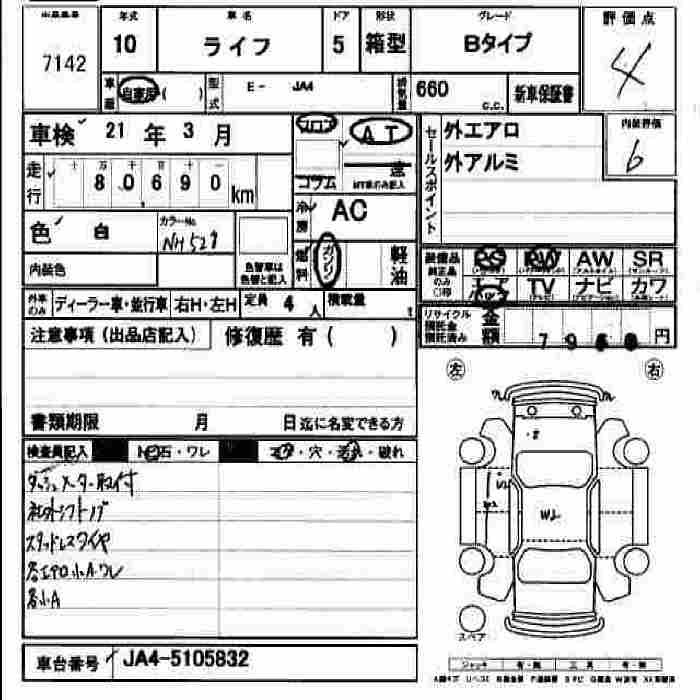 出品番号 年式 車名 ドア 形状 グレード 評価点
7142 10 ライフ 5 箱型 Bタイプ 4
車歴 自家用 ( ) 型式 E- JA4 排気量 660 c.c. 新車保証書
車検 21 年 3 月 フロア AT セールスポイント 外エアロ 内装評価
外アルミ 6
走行 十 万 千 80690 km コラム 速 MT車のみ記入
色 白 カラーNo. NH529 冷房 AC
内装色 色替車は色替と記入 燃料 ガソリン 軽油
装備品 純正品のみ○印 PS PW AW SR
TV ナビ カワ
外車のみ ディーラー車・並行車 右H・左H 定員 4 人 積載量 t
リサイクル預託金預託済み 金額 円
注意事項(出品店記入) 修復歴 有 ( )
左 右
書類期限 月 日迄に名変できる方
検査員記入 石・ワレ ・穴・ ・破れ
スタッドレスタイヤ
各エアロ小Aワレ
各小A
W2
スペア
車台番号 JA4-5105832
ジャッキ 有・無 工具 有・無